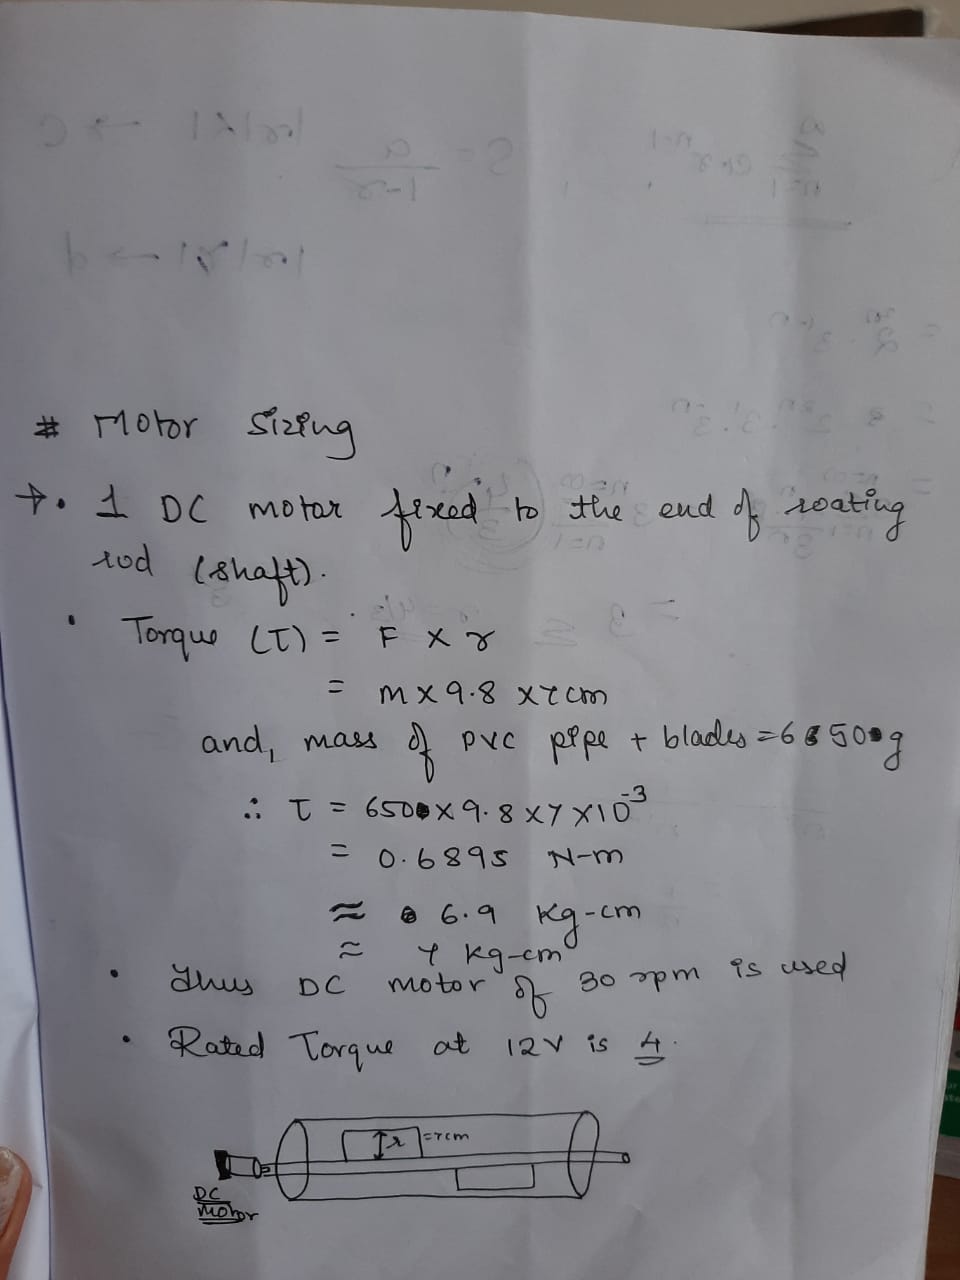 # Motor Sizing
→ • 1 DC motor fixed to the end of roating
rod (shaft).
• Torque (T) = F × r
= m × 9.8 × 7 cm
and, mass of PVC pipe + blades = 650 g
∴ T = 650 × 9.8 × 7 × 10⁻³
= 0.6895 N-m
≈ 6.9 kg-cm
≈ 7 kg-cm
• Thus DC motor of 30 rpm is used
• Rated Torque at 12V is 4.
r = 7cm
DC
Motor